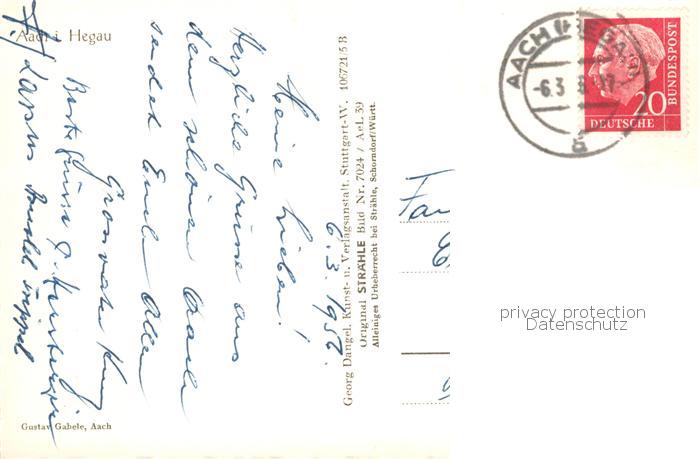 Aach i. Hegau
6.3.1957.
Meine Lieben!
Herzliche Grüsse aus
dem schönen Aach
sendet Euch Allen
Grossvater
Beste Grüsse
Gustav Gabele, Aach
Georg Dangel, Kunst- u. Verlagsanstalt, Stuttgart-W. 106721/5 B
Original STRÄHLE Bild Nr. 7024 / AeL 39
Alleiniges Urheberrecht bei Strähle, Schorndorf/Württ.
Fam
AACH (HEGAU)
-6.3
a
20
DEUTSCHE
BUNDESPOST
privacy protection
Datenschutz